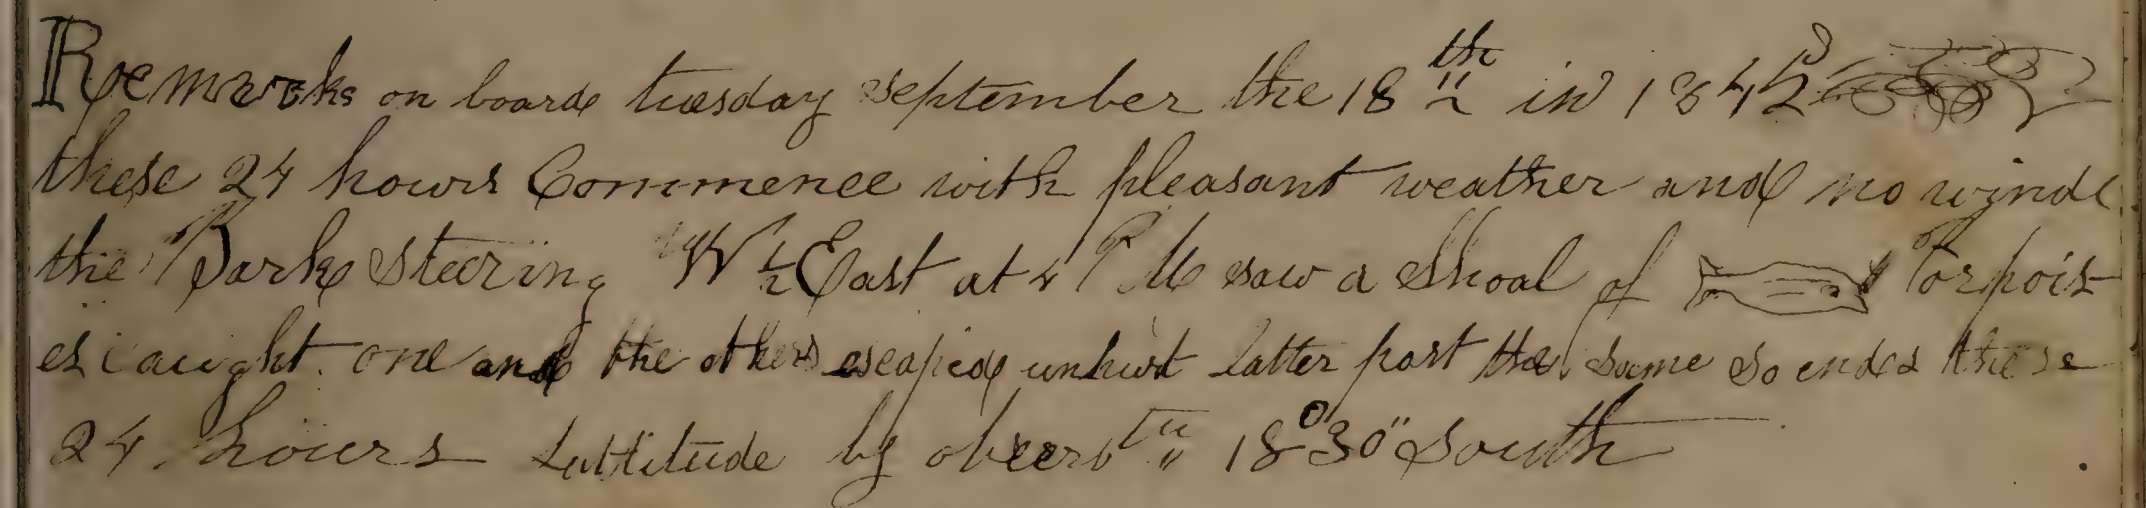 Remarks on board tuesday september the 18th in 1842
these 24 hours Commence with pleasant weather and no wind
the Bark steering W ½ East at 4 P M saw a Shoal of Porpois
es caught one and the others escaped unhurt latter part the same so ends these
24 hours Lattitude by obserbtn 18°30" South